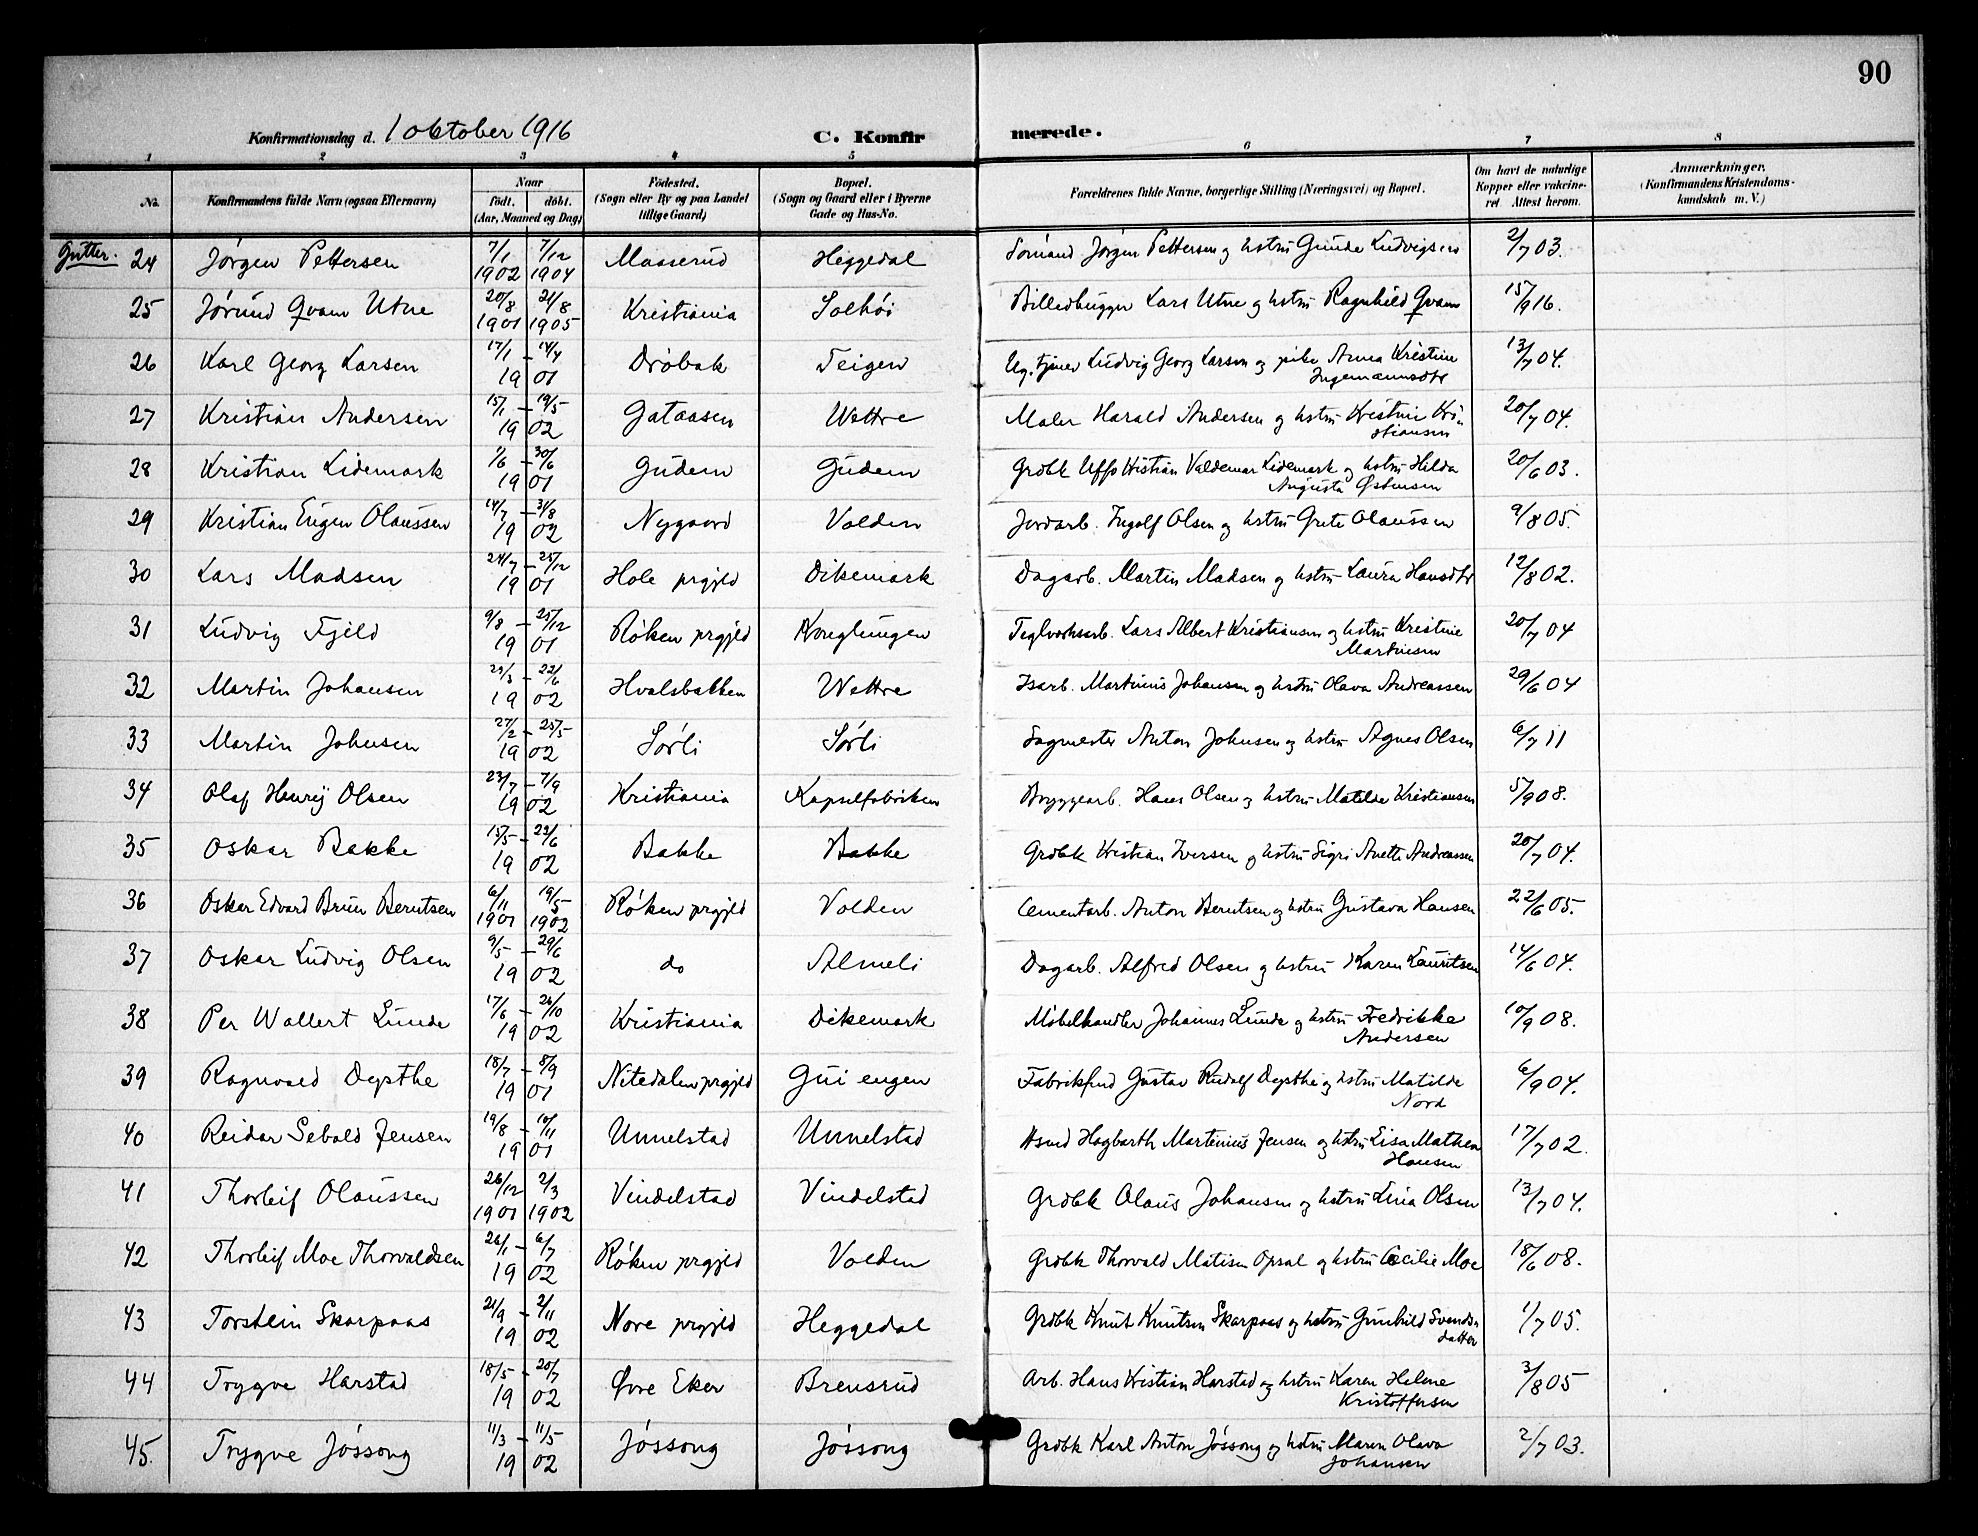 90
Konfirmationsdag d. 1 oktober 1916 C. Konfirmerede.
1 2 3 4 5 6 7 8
No. Konfirmandens fulde Navn (ogsaa Efternavn) Naar født. døbt. (Aar, Maaned og Dag) Fødested. (Sogn eller By og paa Landet tillige Gaard) Bopæl. (Sogn og Gaard eller i Byerne Gade og Hus-No. Forældrenes fulde Navne, borgerlige Stilling (Næringsvei) og Bopæl. Om havt de naturlige Kopper eller vakcineret. Attest herom. Anmærkninger. (Konfirmandens Kristendomskundskab m. V.)
Gutter. 24 Jørgen Pettersen 7/1 1902 7/12 1904 Maaserud Heggedal Sømand Jørgen Pettersen og hstru Gunda Ludvigsen 2/7 03.
25 Jørund Qvam Utne 20/8 1901 21/8 1905 Kristiania Solhöi Billedhugger Lars Utne og hstru Ragnhild Qvam 15/9 16.
26 Karl Georg Larsen 17/1 – 14/4 1901 Dröbak Teigen Ug. tjener Ludvig Georg Larsen og pike Anna Kristine Ingemannsdtr 13/7 04.
27 Kristian Andersen 15/1 – 19/5 1902 Gataasen Wettre Maler Harald Andersen og hstru Kristine Kristiansen 20/7 04.
28 Kristian Lidemark – 30/6 1901 Gudem Gudem Grdbk Uffe Kristian Valdemar Lidemark og hstru Hilda Augusta Østensen 20/6 03.
29 Kristian Eugen Olaussen 14/7 – 31/8 1902 Nygaard Volden Jordarb. Ingolf Olsen og hstru Grete Olaussen 9/8 05.
30 Lars Madsen 24/7 – 25/12 1901 Hole prgjeld Dikemark Dagarb. Martin Madsen og hstru Laura Hansdtr 12/8 02.
31 Ludvig Fjeld 9/8 – 25/12 1901 Röken prgjeld Kongelungen Teglverksarb. Lars Albert Kristiansen og hstru Kristine Martinsen 20/7 04
32 Martin Johansen – 22/6 1902 Hvalsbakken Wettre Isarb. Martinius Johansen og hstru Olava Andreassen 29/6 04
33 Martin Johnsen 27/2 – 25/5 1902 Sørli Sørli Sagmester Anton Johnsen og hstru Agnes Olsen 6/7 11
34 Olaf Henrij Olsen 23/7 – 7/9 1902 Kristiania Kapselfabriken Bryggearb. Hans Olsen og hstru Matilde Kristiansen 5/9 08.
35 Oskar Bakke 15/5 – 22/6 1902 Bakke Bakke Grdbk Kristian Iversen og hstru Sigri Anette Andreassen 20/7 04.
36 Oskar Edvard Brun Berntsen 6/11 1901 19/5 1902 Röken prgjeld Volden Cementarb. Anton Berntsen og hstru Gustava Hansen 22/6 05.
37 Oskar Ludvig Olsen 9/5 – 29/6 1902 do Almeli Dagarb. Alfred Olsen og hstru Karen Lauritsen 14/6 04.
38 Per Wollert Lunde 17/6 – 26/10 1902 Kristiania Dikemark Møbelhandler Johannes Lunde og hstru Fredrikke Andersen 10/9 08.
39 Ragnvald Dysthe 18/7 – 8/9 1901 Nitedalen prgjeld Gui engen Fabrikfmd Gustav Rudolf Dysthe og hstru Matilde Nord 6/9 04.
40 Reidar Sebald Jensen 19/8 – 10/11 1901 Unnelstad Unnelstad Hsmd Hagbarth Martinius Jensen og hstru Lisa Mathea Hansen 17/7 02.
41 Thorleif Olaussen 26/12 1901 2/3 1902 Vindelstad Vindelstad Grdbk Olaus Johansen og hstru Lina Olsen 13/7 04.
42 Thorleif Moe Thorvaldsen 26/1 – 6/7 1902 Röken prgjeld Volden Grdbk Thorvald Matisen Opsal og hstru Cecilie Moe 18/6 08.
43 Torstein Skarpaas 21/9 – 2/11 1902 Nore prgjeld Heggedal Grdbk Knut Knutsen Skarpaas og hstru Gunhild Svendsdatter 1/7 05.
44 Trygve Harstad 18/5 – 20/7 1902 Øvre Eker Brensrud Arb. Hans Kristian Harstad og hstru Karen Helene Kristoffersen 3/8 05
45. Trygve Jössong 11/3 – 11/5 1902 Jössong Jössong Grdbk Karl Anton Jössong og hstru Maren Olava Johansen 2/7 03.